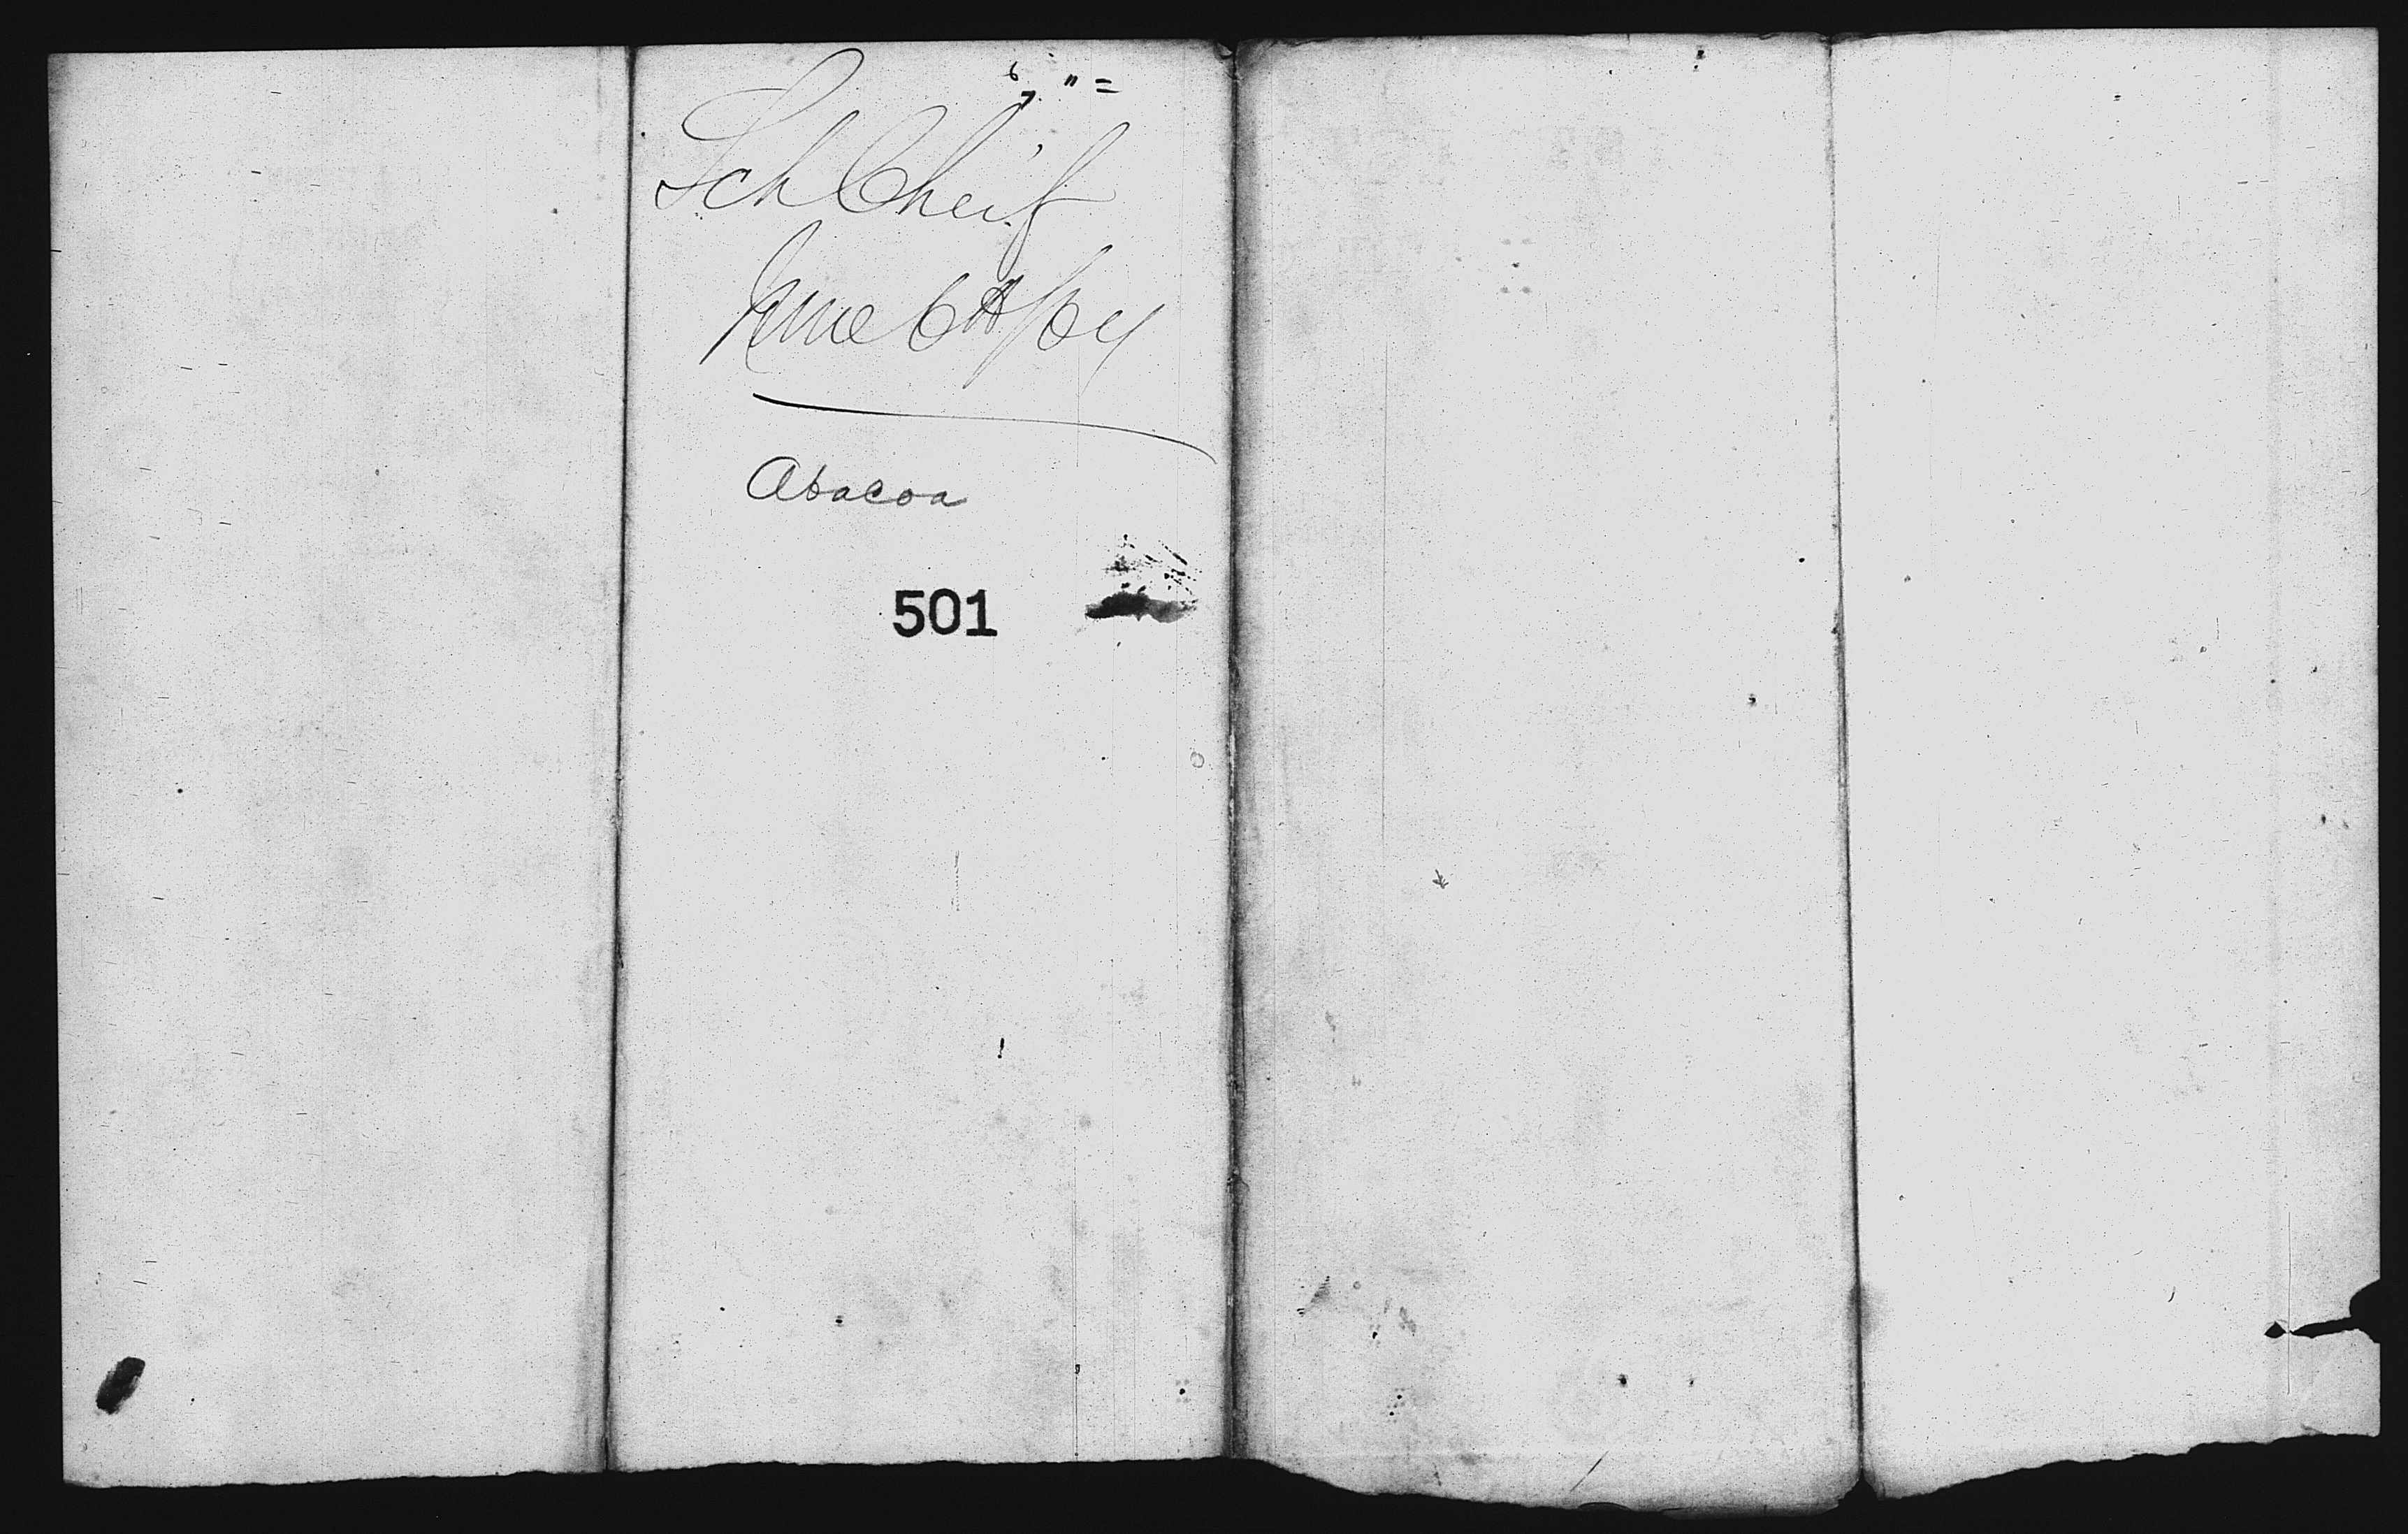 Sch Cheif
June 6th/04
Abacoa
501